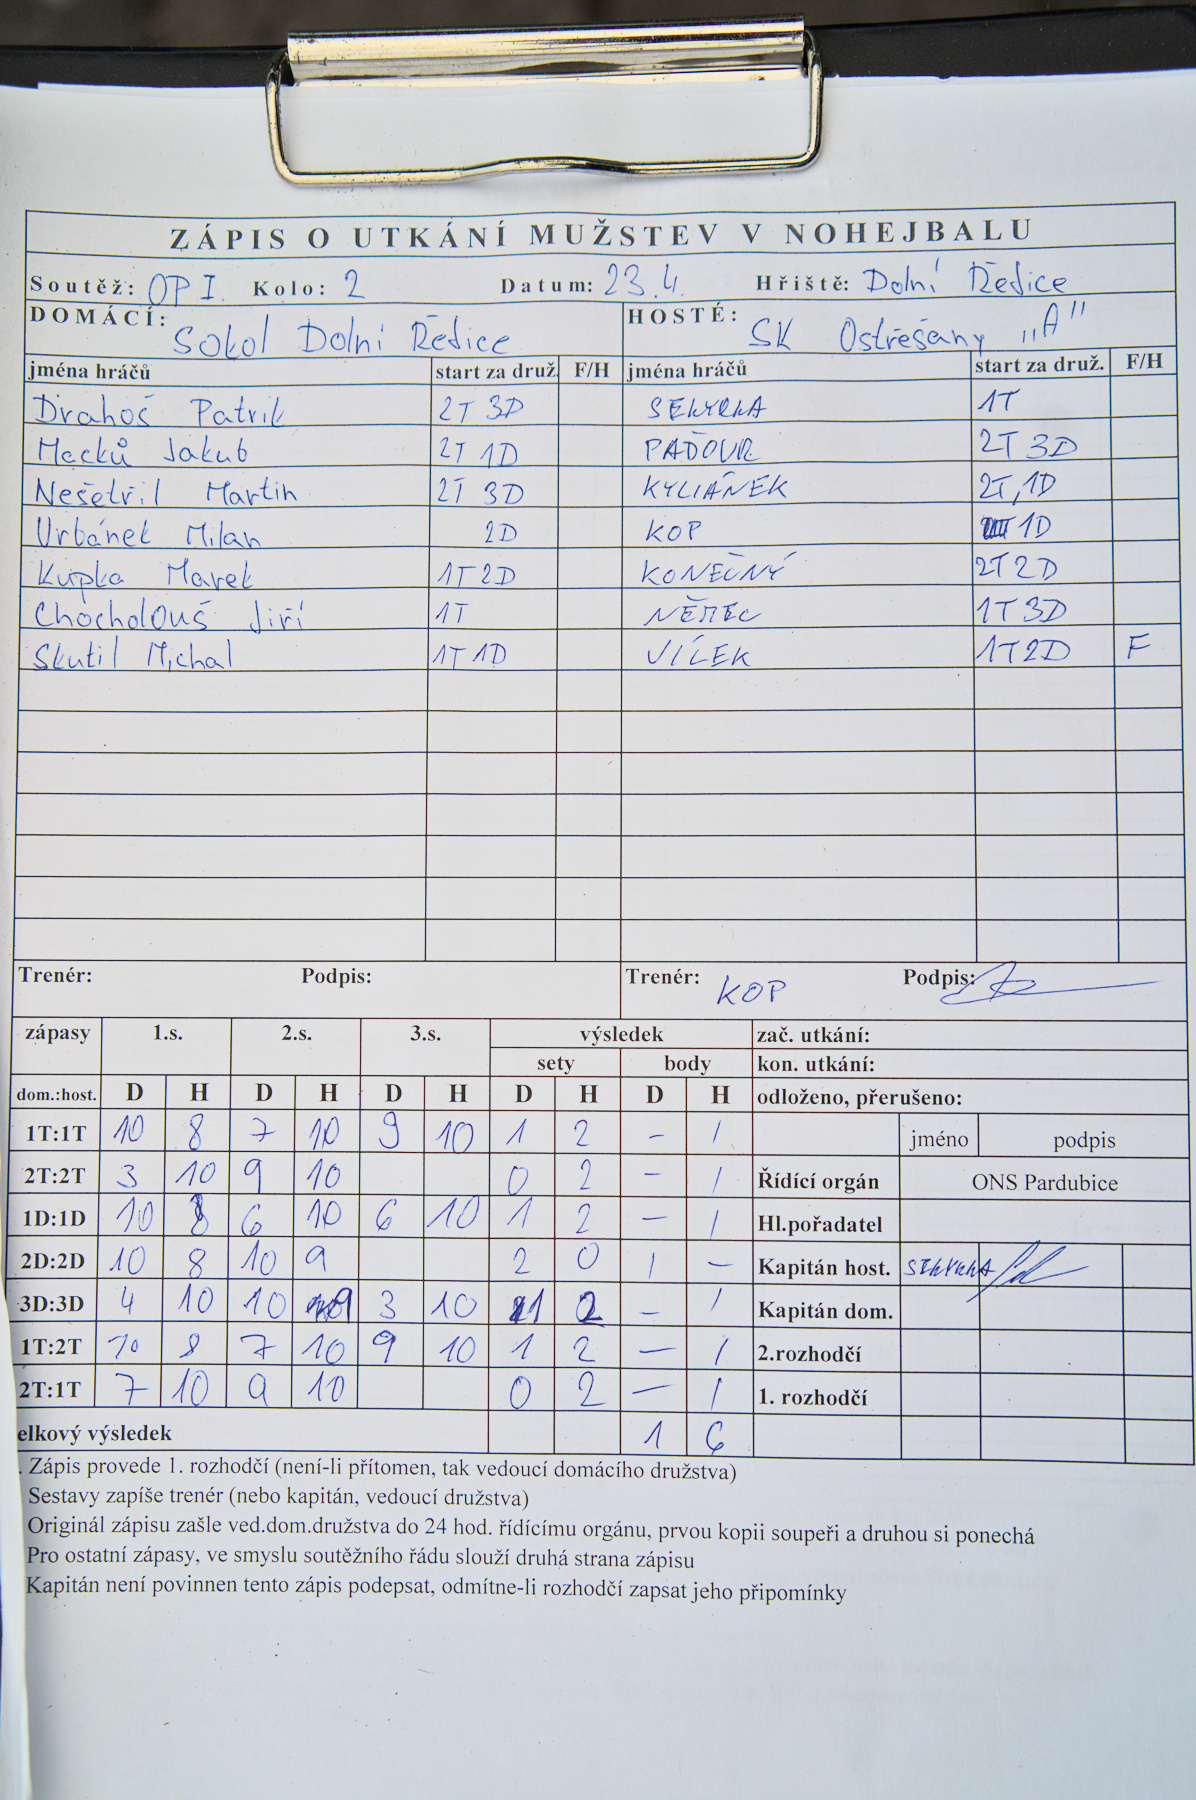 ZÁPIS O UTKÁNÍ MUŽSTEV V NOHEJBALU
Soutěž: OP I. Kolo: 2 Datum: 23.4. Hřiště: Dolní Ředice
DOMÁCÍ: Sokol Dolní Ředice HOSTÉ: SK Ostřešany "A"
jména hráčů start za druž. F/H jména hráčů start za druž. F/H
Drahoš Patrik 2T 3D SEKYRKA 1T
Macků Jakub 2T 1D PAĎOUR 2T 3D
Nešetřil Martin 2T 3D KYLIÁNEK 2T, 1D
Urbánek Milan 2D KOP 1D
Kupka Marek 1T 2D KONEČNÝ 2T 2D
Chocholouš Jiří 1T NĚMEC 1T 3D
Skutil Michal 1T 1D VÍLEK 1T 2D F
Trenér: Podpis: Trenér: KOP Podpis:
zápasy 1.s. 2.s. 3.s. výsledek zač. utkání:
sety body kon. utkání:
dom.:host. D H D H D H D H D H odloženo, přerušeno:
1T:1T 10 8 7 10 9 10 1 2 – 1 jméno podpis
2T:2T 3 10 9 10 0 2 – 1 Řídící orgán ONS Pardubice
1D:1D 10 8 6 10 6 10 1 2 – 1 Hl.pořadatel
2D:2D 10 8 10 9 2 0 1 – Kapitán host. SEKYRKA
3D:3D 4 10 10 9 3 10 1 2 – 1 Kapitán dom.
1T:2T 10 8 7 10 9 10 1 2 – 1 2.rozhodčí
2T:1T 7 10 9 10 0 2 – 1 1. rozhodčí
elkový výsledek 1 6
. Zápis provede 1. rozhodčí (není-li přítomen, tak vedoucí domácího družstva)
Sestavy zapíše trenér (nebo kapitán, vedoucí družstva)
Originál zápisu zašle ved.dom.družstva do 24 hod. řídícímu orgánu, prvou kopii soupeři a druhou si ponechá
Pro ostatní zápasy, ve smyslu soutěžního řádu slouží druhá strana zápisu
Kapitán není povinnen tento zápis podepsat, odmítne-li rozhodčí zapsat jeho připomínky